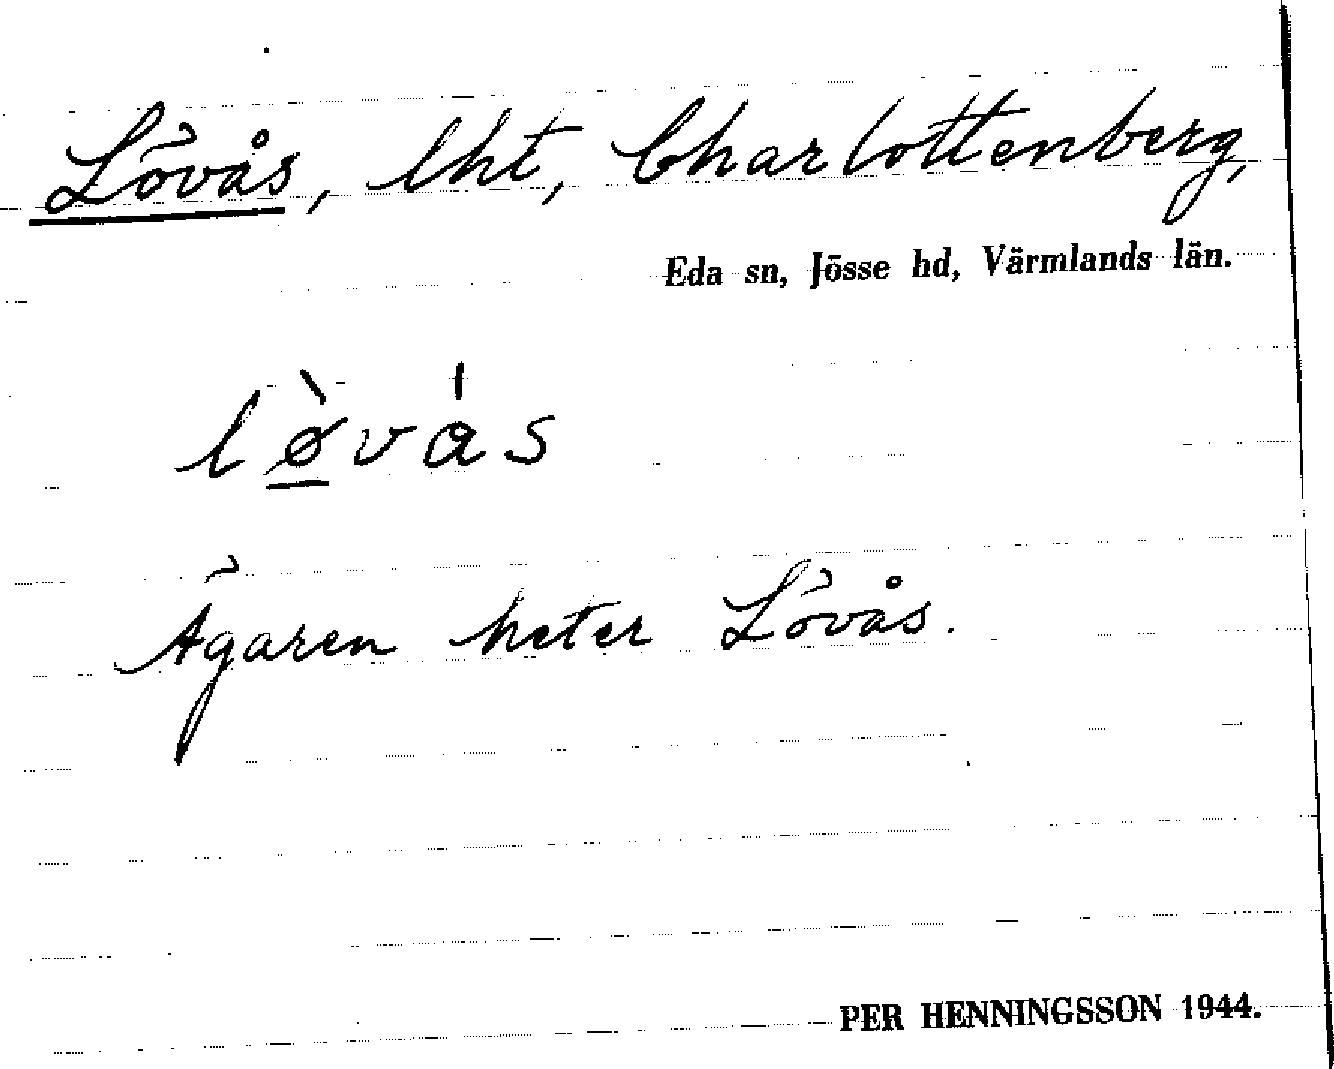 Lövås, lht, Charlottenberg,
Eda sn, Jösse hd, Värmlands län.
lø̠̀vás
Ägaren heter Lövås.
PER HENNINGSSON 1944.